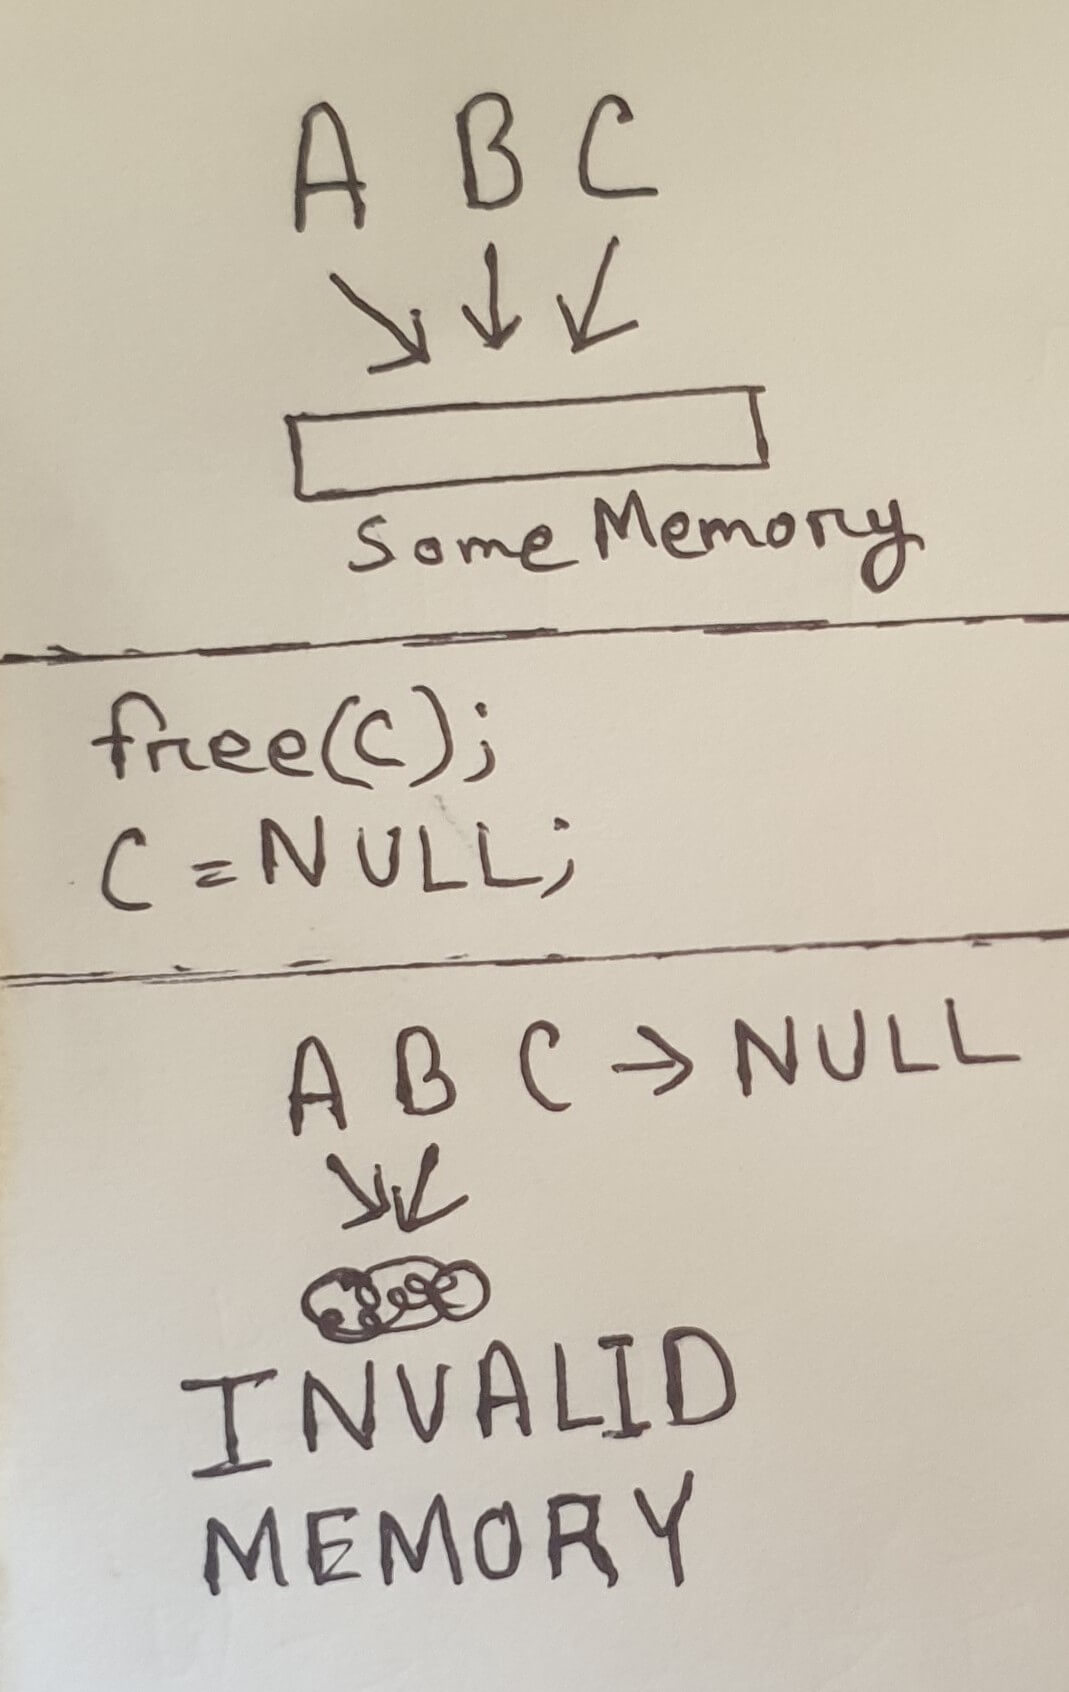 A B C
Some Memory
free(C);
C = NULL;
A B C → NULL
INVALID
MEMORY